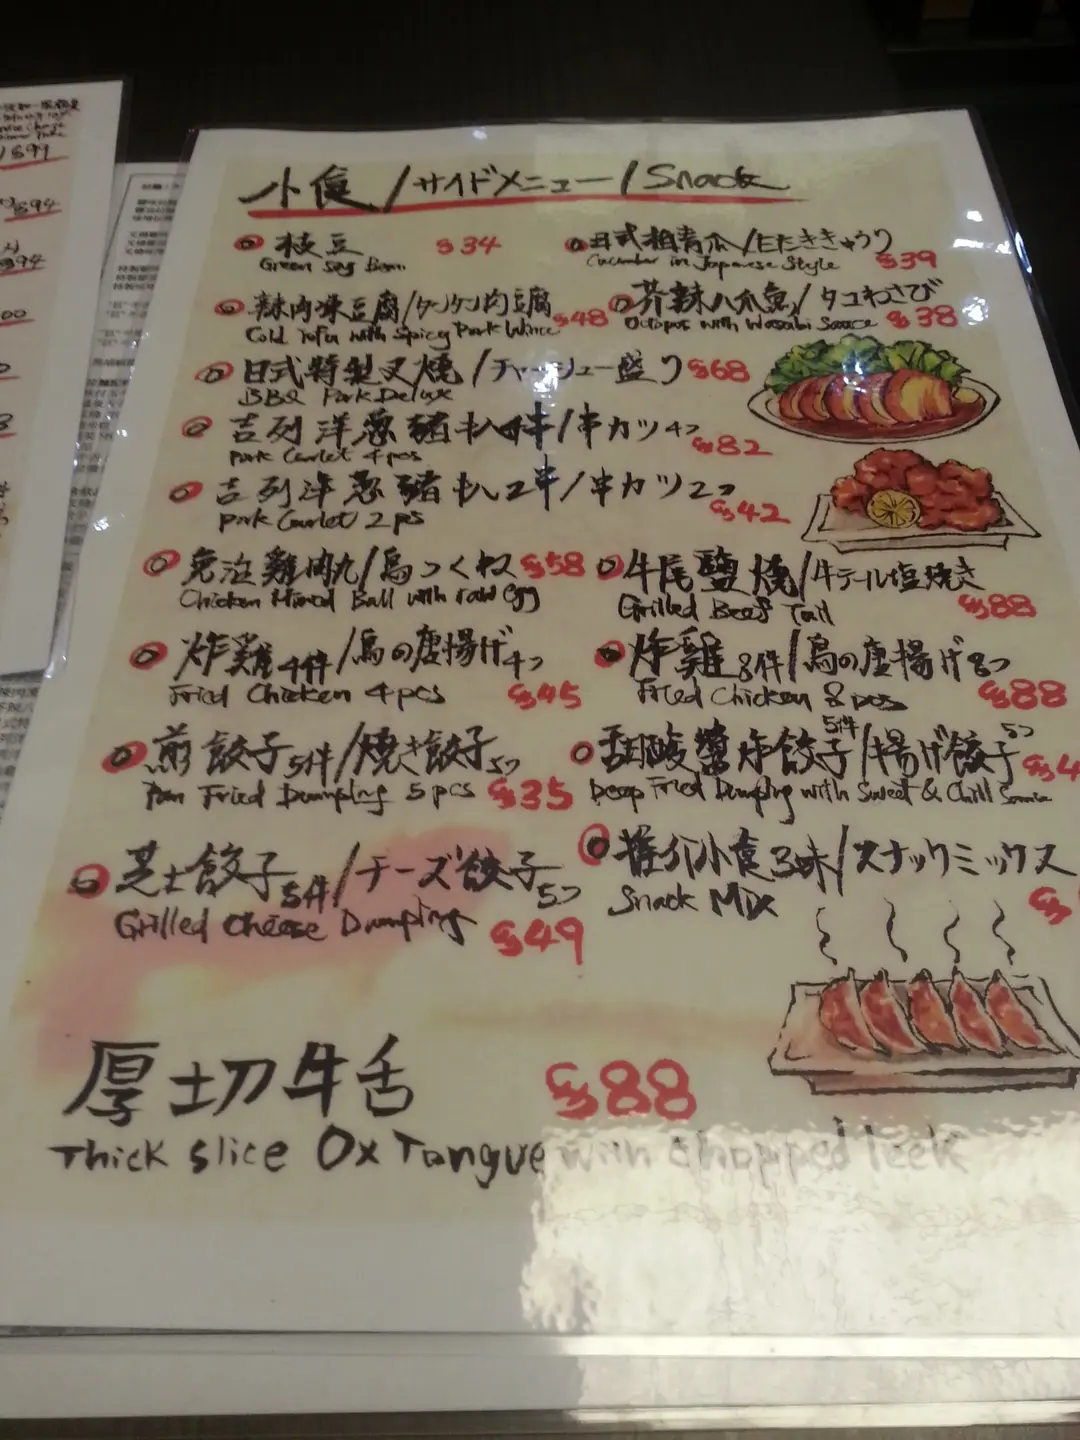 $99
$94
$94
小食/サイドメニュー/Snack
枝豆 $34
Green Soy Bean
日式拍青瓜/たたききゅうり
Cucumber in Japanese Style $39
辣肉凍豆腐/タンタン肉豆腐 $48
Cold Tofu with Spicy Pork Mince
芥辣八爪魚/タコわさび
Octopus with Wasabi Sauce $38
日式特製叉燒/チャーシュー盛り $68
BBQ Pork Delux
吉列洋蔥豬扒4串/串カツ4つ
Pork Curlet 4pcs $82
吉列洋蔥豬扒2串/串カツ2つ
Pork Curlet 2ps $42
免治雞肉丸/鳥つくね $58
Chicken Minced Ball with raw egg
牛尾鹽燒/牛テール塩焼き
Grilled Beef Tail $88
炸雞4件/鳥の唐揚げ4つ
Fried Chicken 4pcs $45
炸雞8件/鳥の唐揚げ8つ
Fried Chicken 8pcs $88
煎餃子5件/焼き餃子5つ
Pan Fried Dumpling 5pcs $35
甜酸醬炸餃子5件/揚げ餃子5つ $4
Deep Fried Dumpling with Sweet & Chill
芝士餃子5件/チーズ餃子5つ
Grilled Cheese Dumpling $49
推介小食3味/スナックミックス
Snack Mix $
厚切牛舌 $88
Thick slice Ox Tongue with chopped leek